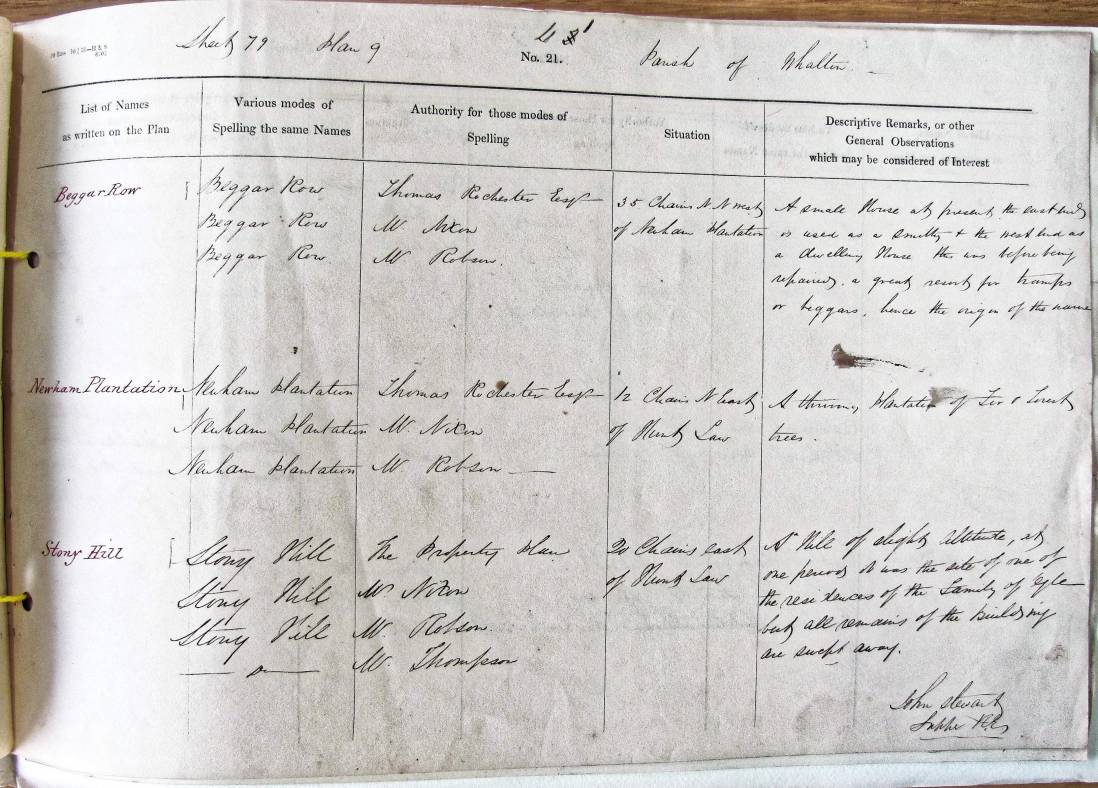 Sheet 79 Plan 9
No. 21.
Parish of Whalton
List of Names
as written on the Plan
Various modes of
Spelling the same Names
Authority for those modes of
Spelling
Situation
Descriptive Remarks, or other
General Observations
which may be considered of Interest
Beggar Row
Beggar Row
Beggar Row
Beggar Row
Thomas Rochester Esqr
Mr. Nixon
Mr. Robson.
35 Chains N N West
of Newham Plantation
A small House at present, the east end
is used as a smithy & the west end as
a dwelling House this was before being
repaired, a great resort for tramps
or beggars, hence the origin of the name
Newham Plantation
Newham Plantation
Newham Plantation
Newham Plantation
Thomas Rochester Esqr
Mr. Nixon
Mr. Robson
12 Chains N East
of Hunts Law
A thriving Plantation of Fir & Forest
trees.
Stony Hill
Stony Hill
Stony Hill
Stony Hill
— Do —
The Property Plan
Mr Nixon
Mr. Robson.
Mr. Thompson
20 Chains east
of Hunts Law
A Hill of slight altitude, at
one period it was the site of one of
the residences of the Family of
but all remains of the Building
are swept away.
John Stewart
Sapper R.E.